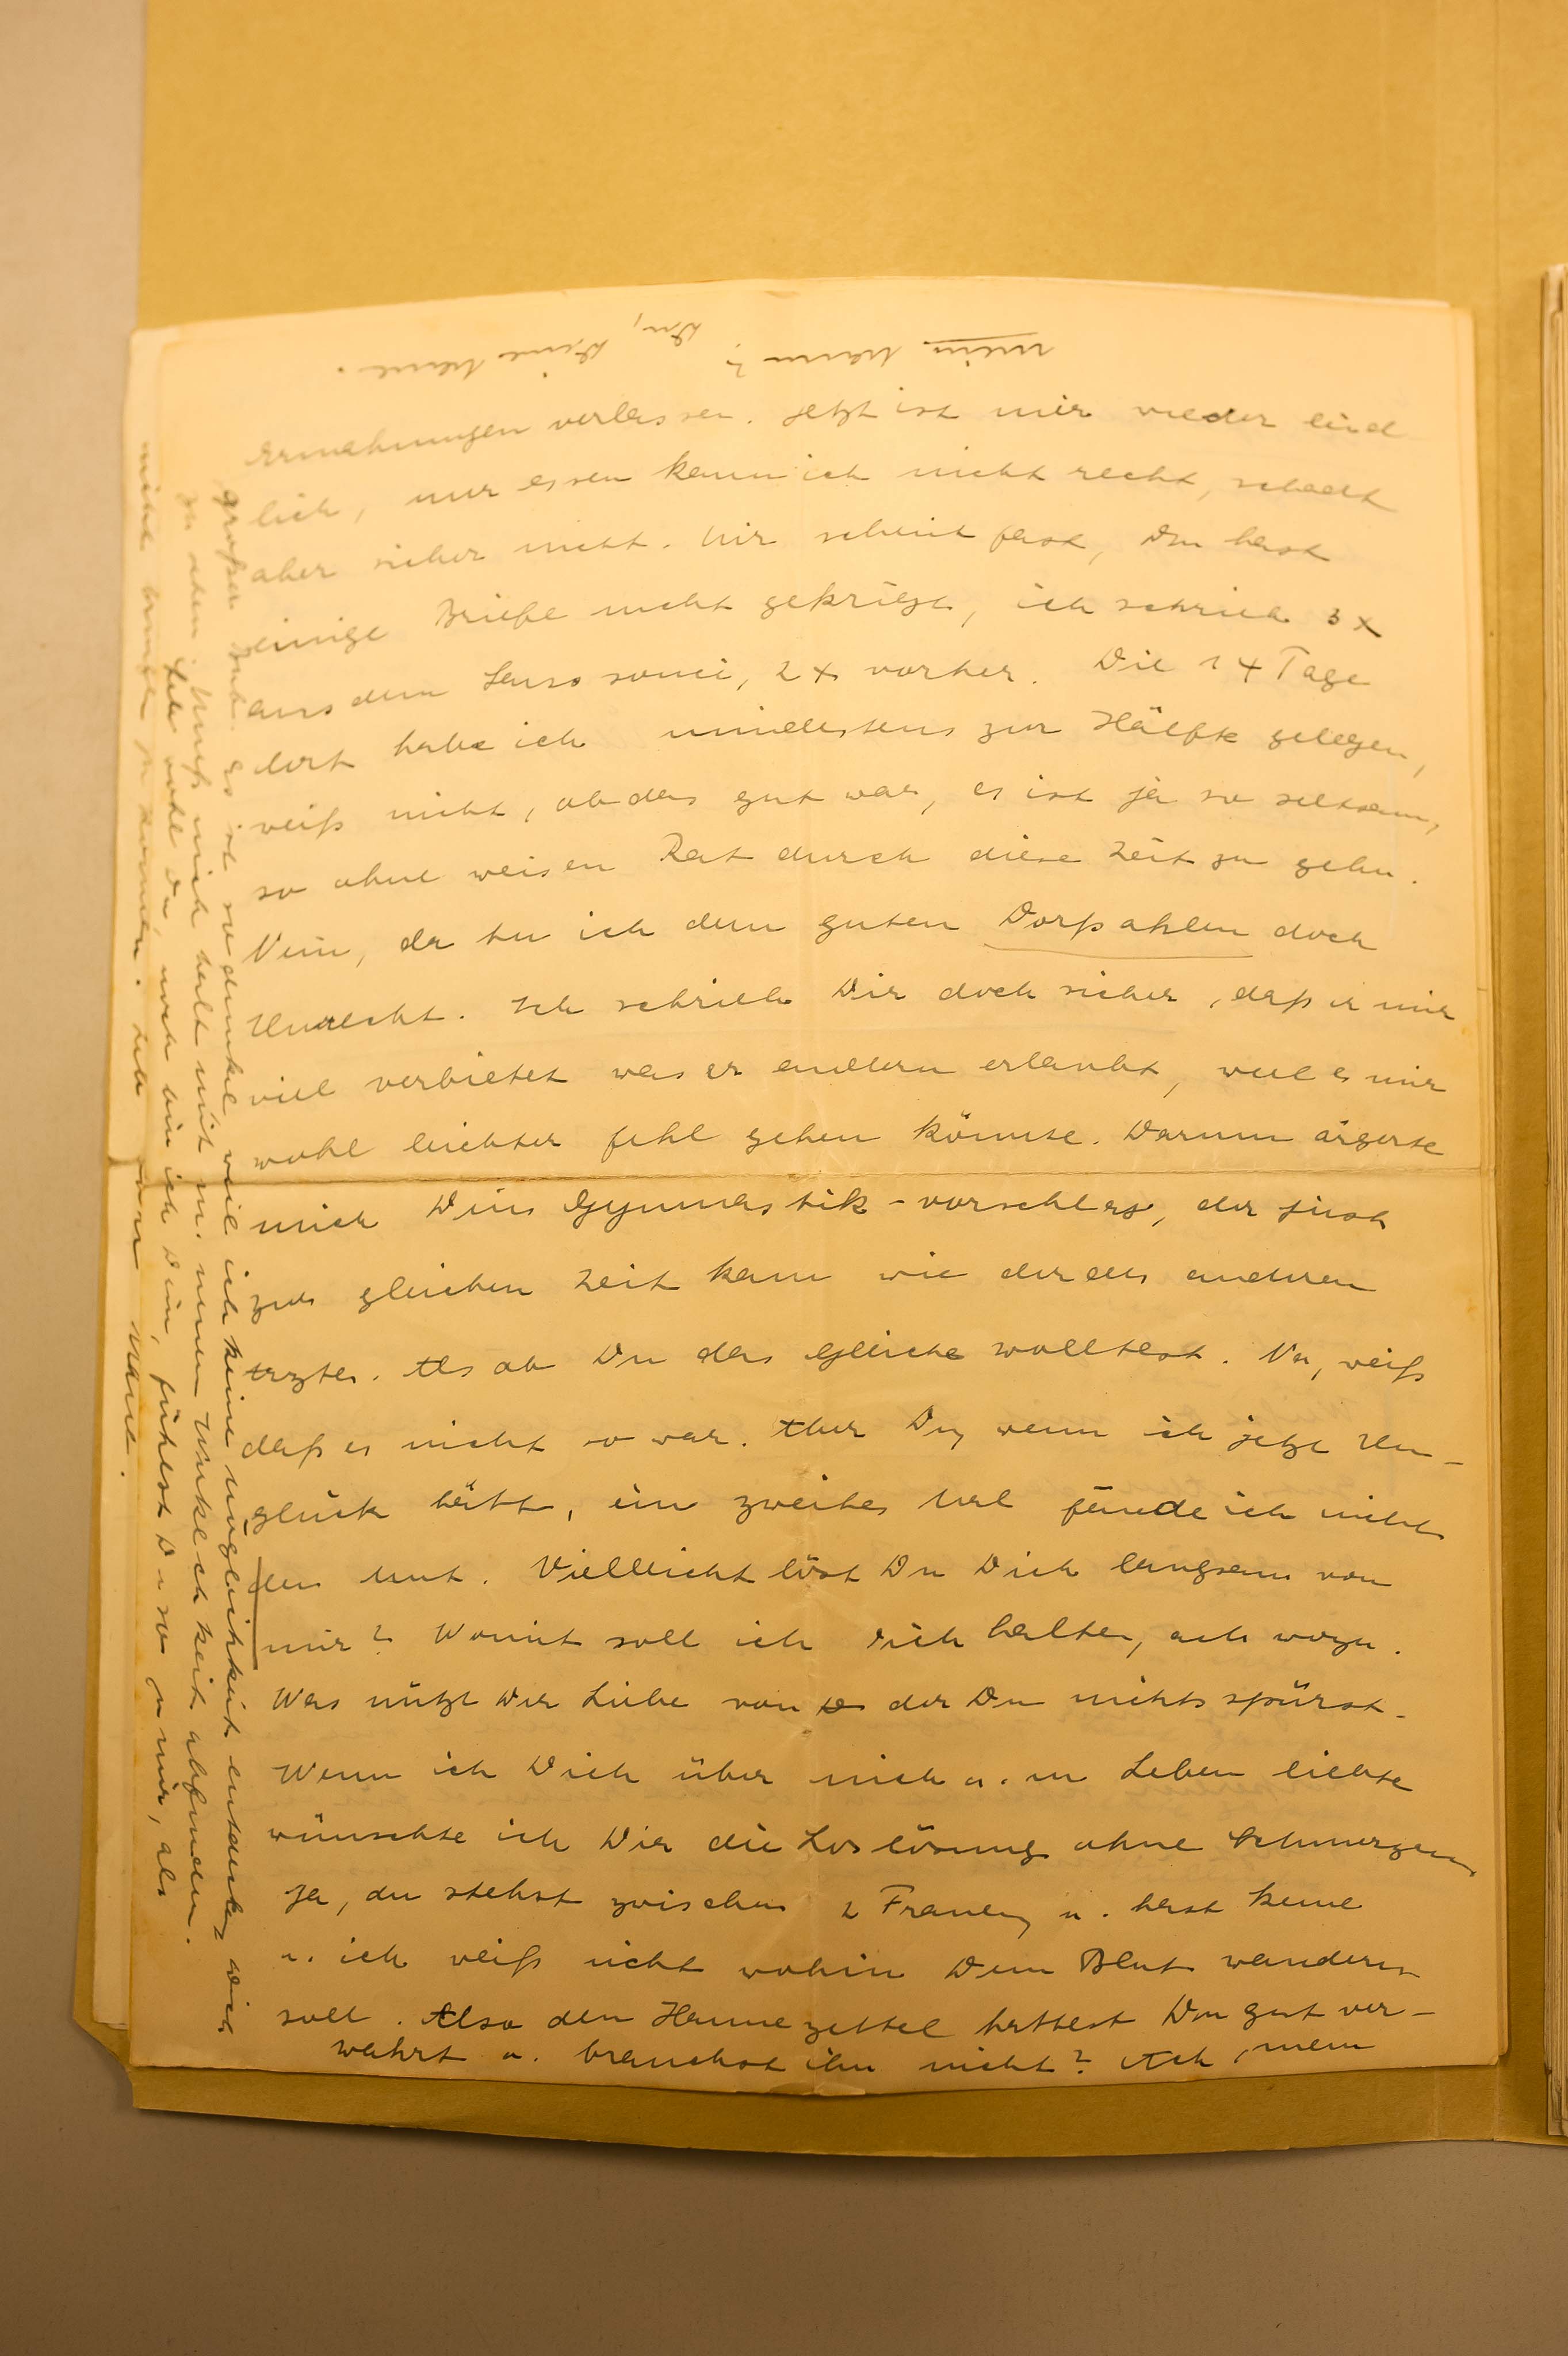 Ermahnungen verlassen. Jetzt ist mir wieder leid
lich, nur essen kann ich nicht recht, schadet
aber sicher nicht. Mir scheint fast, Du hast
einige Briefe nicht gekriegt, ich schrieb 3 x
aus dem Sanssouci, 2 x vorher. Die 14 Tage
dort habe ich mindestens zur Hälfte gelegen,
weiß nicht, ob das gut war, es ist ja so seltsam,
so ohne weisen Rat durch diese Zeit zu gehn.
Nein, da tu ich dem guten doch
Unrecht. Ich schrieb Dir doch sicher, daß er mir
viel verbietet was er andern erlaubt, weil es mir
wohl leichter fehl gehen könnte. Darum ärgerte
mich Dein Gymnastik-vorschlag, der just
zur gleichen Zeit kam wie der des anderen
Arztes. Als ob Du das Gleiche wolltest. Na, weiß
daß es nicht so war. Aber Du, wenn ich jetzt Un-
glück hätt, ein zweites Mal fände ich nicht
den Mut. Vielleicht löst Du Dich langsam von
mir? Womit soll ich Dich halten, ach wozu.
Was nützt Dir Liebe von der Du nichts spürst.
Wenn ich Dich über mich u. m Leben liebte
wünschte ich Dir die Loslösung ohne Schmerzen
Ja, du stehst zwischen 2 Frauen u. hast keine
u. ich weiß nicht wohin Dein Blut wandern
soll. Also den Hannezettel hattest Du gut ver-
wahrt u. brauchst ihn nicht? Ach, mein
großer es ist so dunkel weil ich keine Möglichkeit entdecke, Dich
zu sehen. Muß mich halt mit m. neuen Wirklichkeit abfinden.
Leb wohl Du, noch bin ich Dein, fühlst Du so zu mir, als
mein Mann? Du, Deine Hanne.